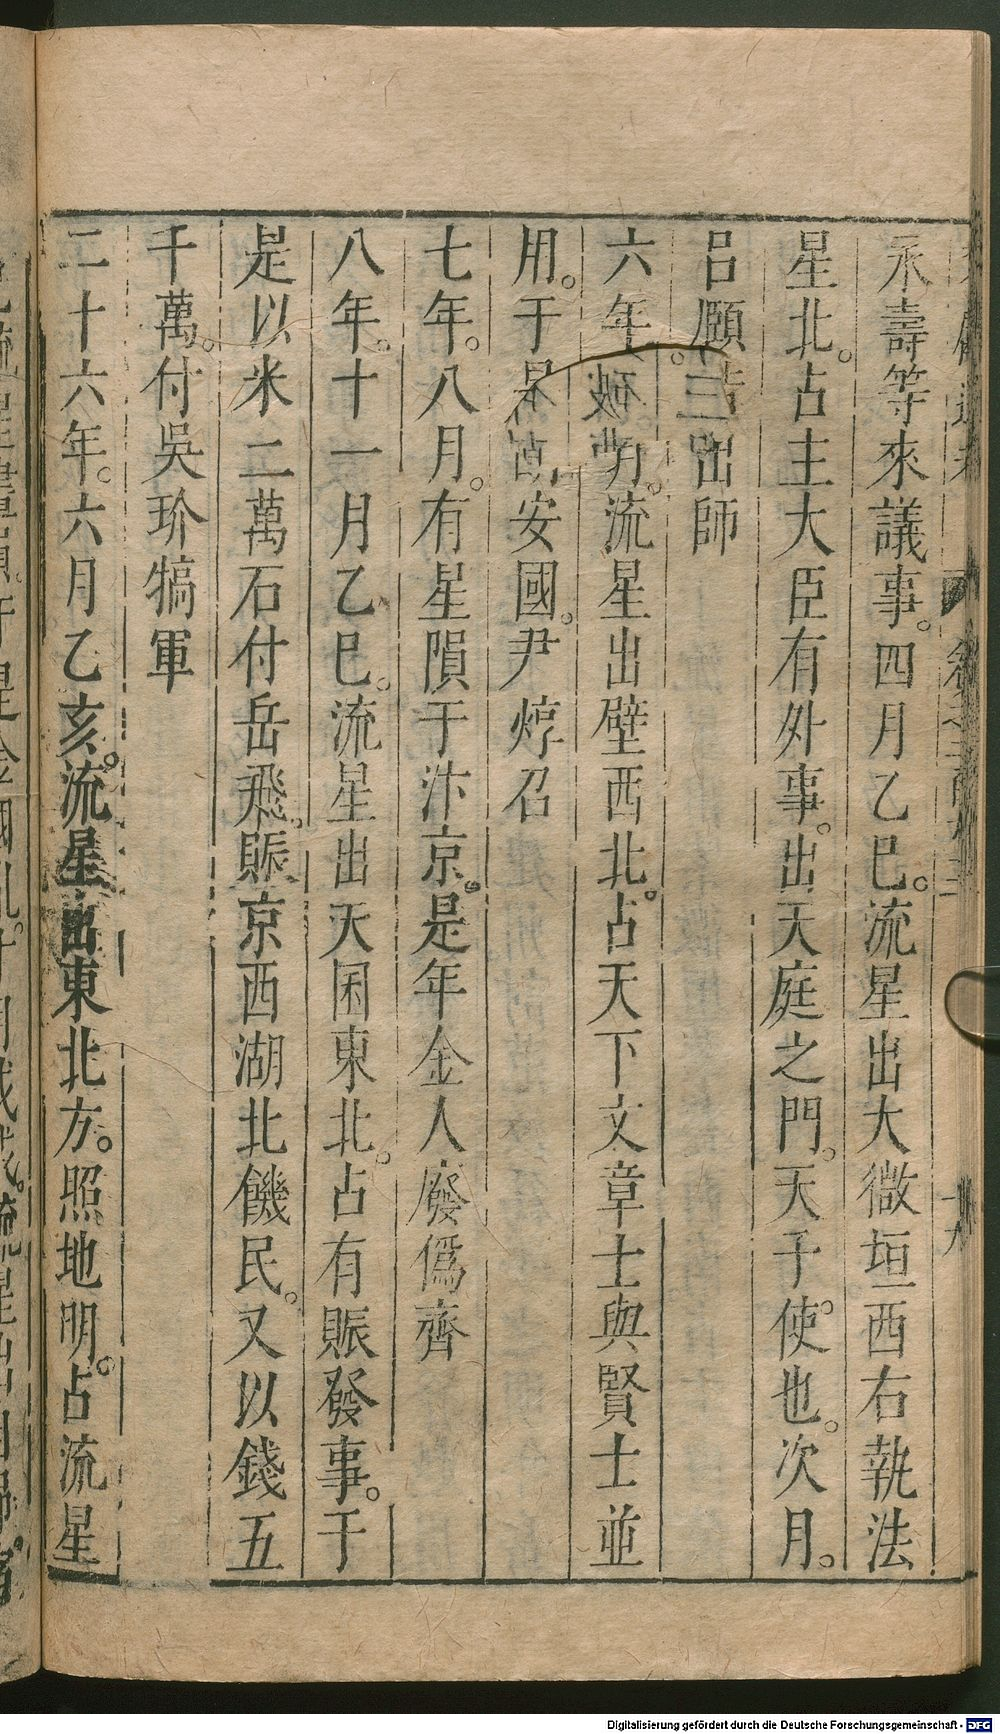 永壽等來議事。四月乙巳。流星出大微垣西右執法
星北。占主大臣有外事。出天庭之門。天子使也。次月。
呂願 出師
六年。 流星出壁西北。占天下文章士與賢士並
用。于是胡安國。尹焞召
七年。八月。有星隕于汴京。是年金人廢僞齊
八年。十一月乙巳。流星出天囷東北。占有賑發事。于
是以米二萬石付岳飛。賑京西湖北饑民。又以錢五
千萬。付吳玠犒軍
二十六年。六月乙亥。流星出東北方。照地明。占流星
Digitalisierung gefördert durch die Deutsche Forschungsgemeinschaft - DFG